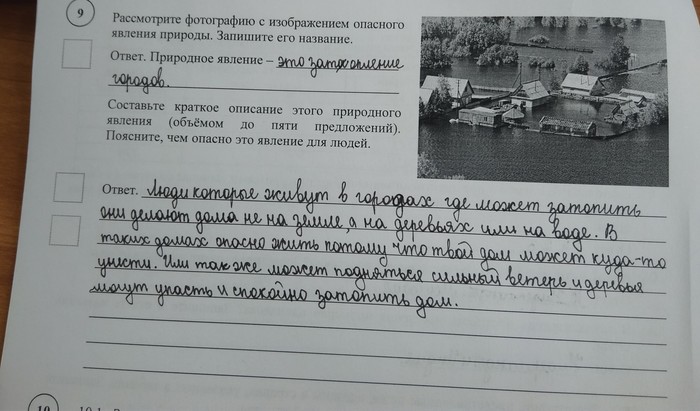 9
Рассмотрите фотографию с изображением опасного
явления природы. Запишите его название.
Ответ. Природное явление – это затопление
городов.
Составьте краткое описание этого природного
явления (объёмом до пяти предложений).
Поясните, чем опасно это явление для людей.
Ответ. Люди которые живут в городах где может затопить
они делают дома не на земле, а на деревьях или на воде. В
таких домах опасно жить потому что твой дом может куда-то
унести. Или также может подняться сильный ветерь и деревья
могут упасть и спокойно затопить дом.
10